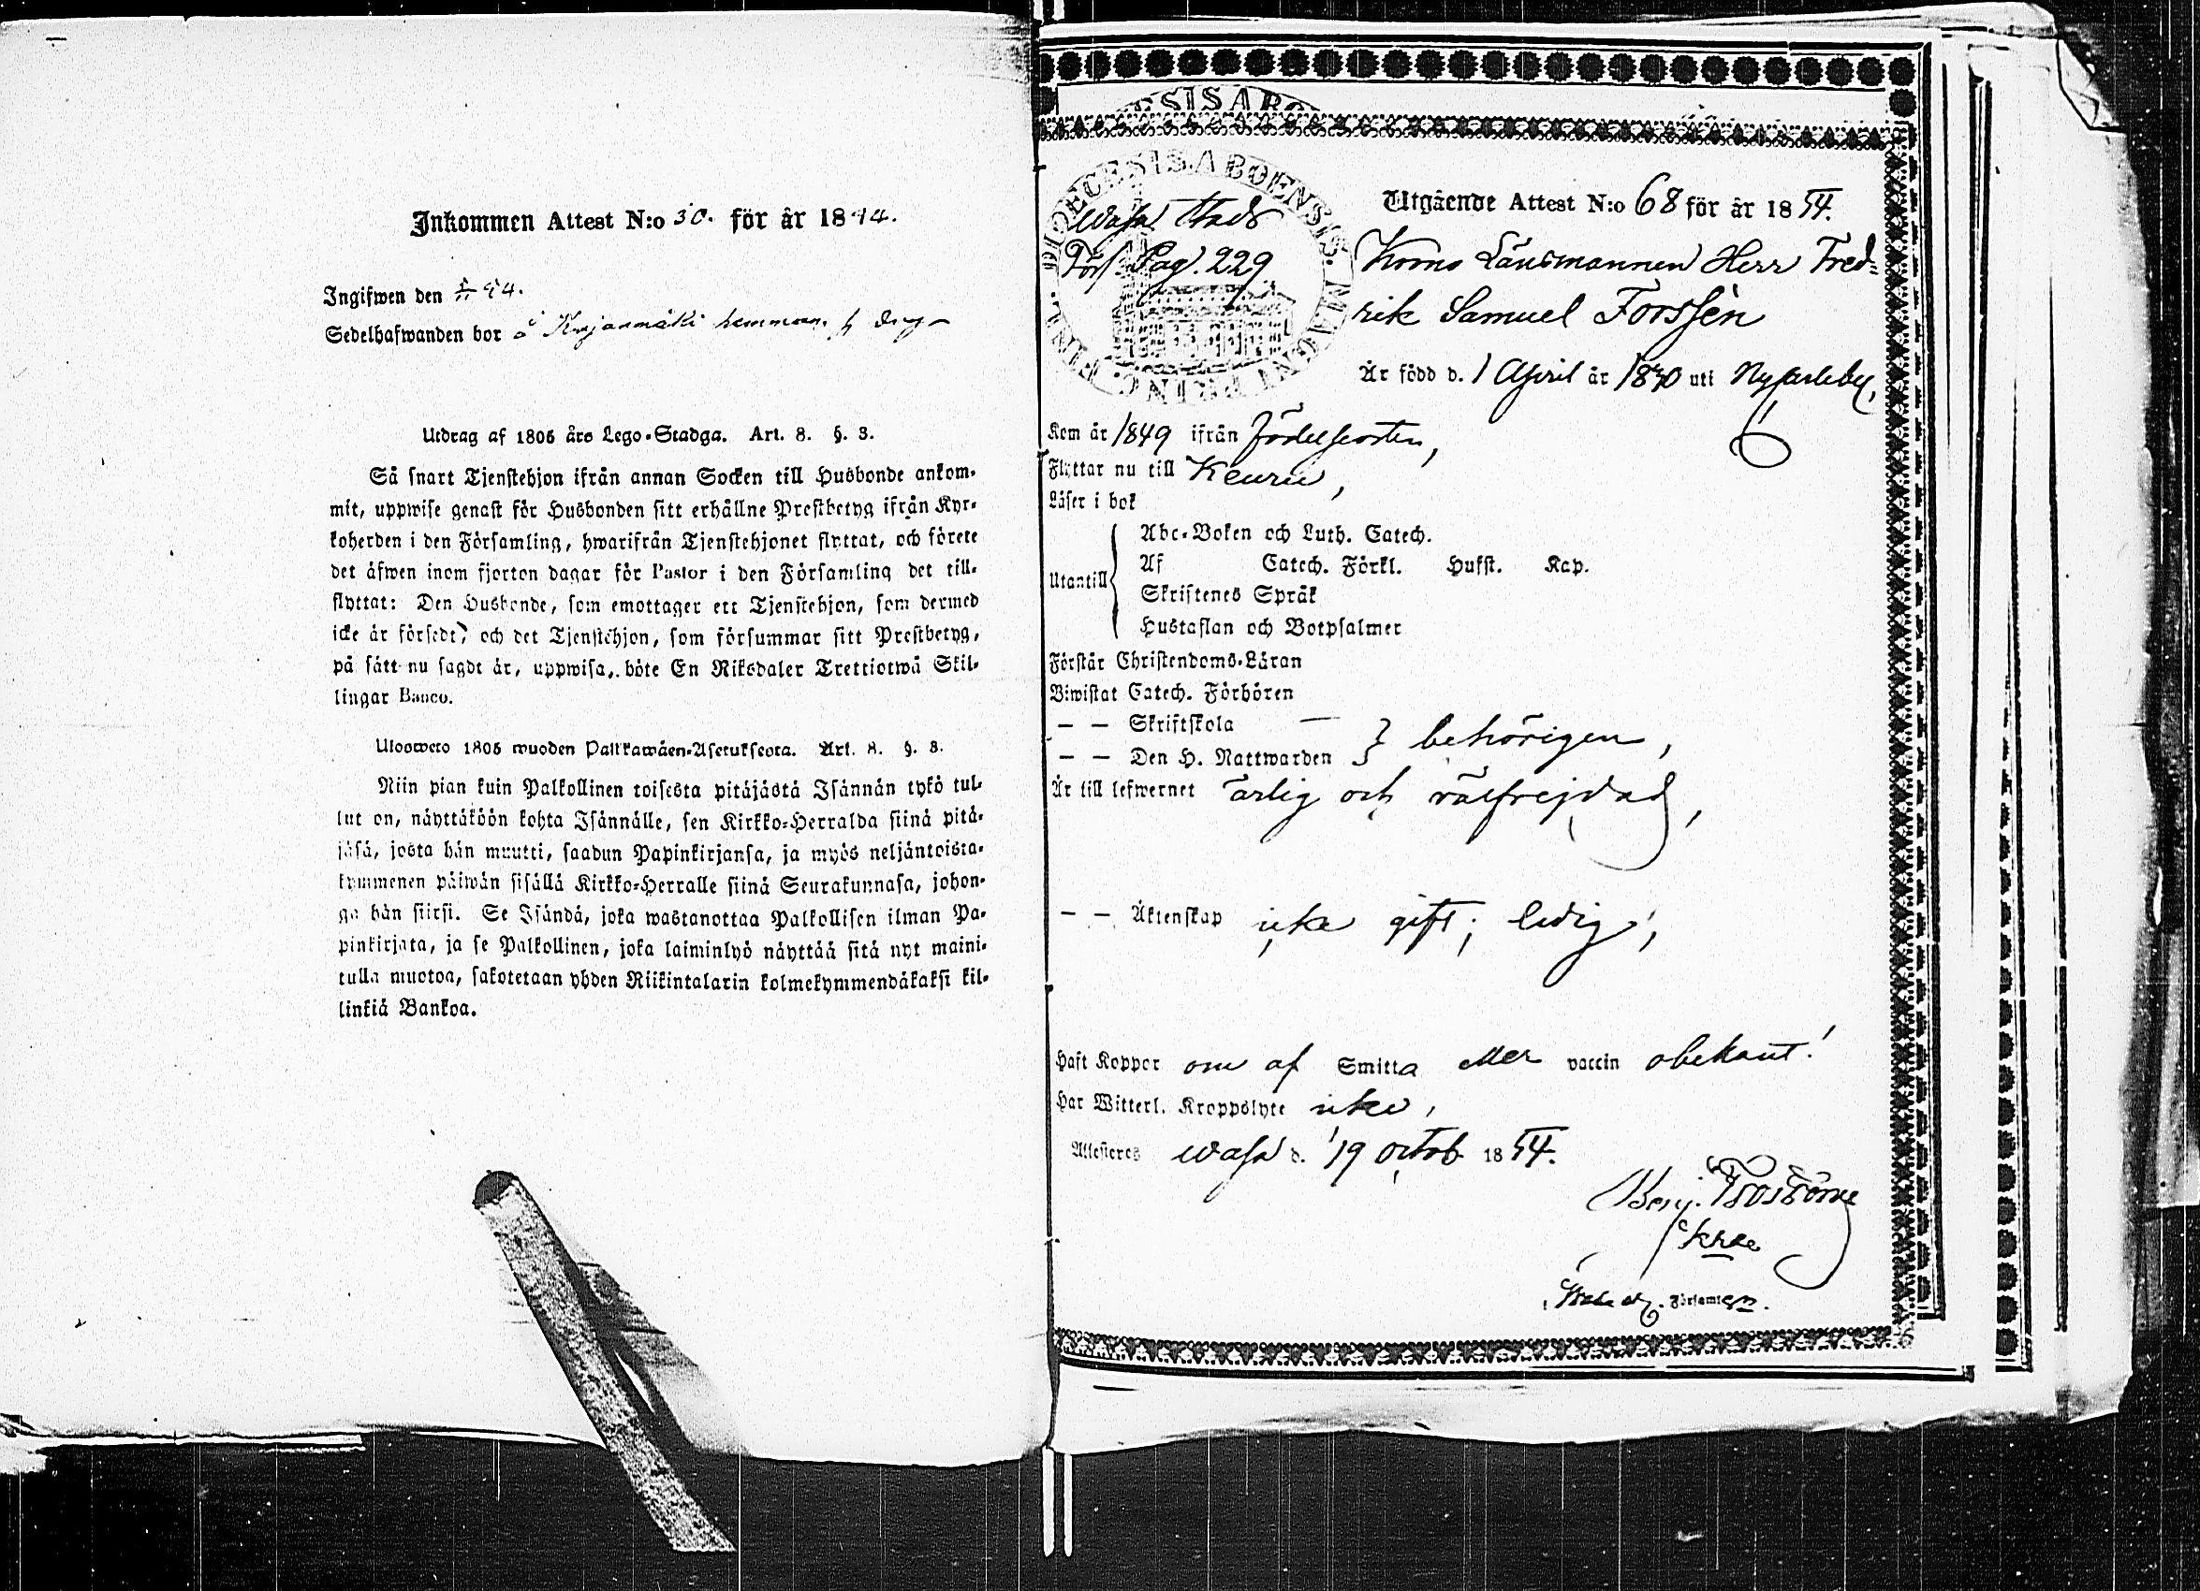 Inkommen Attest N:o 30. för år 1894.
Ingifwen den
Sedelhafwanden bor å hemman
Utdrag af 1805 års Lego-Stadga. Art. 8. §. 3.
Så snart Tjenstehjon ifrån annan Socken till Husbonde ankom-
mit, uppwise genast för Husbonden sitt erhållne Prestbetyg ifrån Kyr-
koherden i den Församling, hwarifrån Tjenstehjonet flyttat, och förete
det äfwen inom fjorton dagar för Pastor i den Församling det till-
flyttat: Den Husbonde, som emottager ett Tjenstehjon, som dermed
icke är försedt, och det Tjenstehjon, som försummar sitt Prestbetyg,
på sätt nu sagdt är, uppwisa, böte En Riksdaler Trettiotwå Skil-
lingar Banco.
Ulosweto 1805 wuoden Palkkawäen-Asetuksesta. Art. 8. §. 3.
Niin pian kuin Palkollinen toisesta pitäjästä Isännän tykö tul-
lut on, näyttäköön kohta Isännälle, sen Kirkko-Herralda siinä pitä-
jäsä, josta hän muutti, saadun Papinkirjansa, ja myös neljäntoista-
kymmenen päiwän sisällä Kirkko-Herralle siinä Seurakunnasa, johon-
ga hän siirsi. Se Isändä, joka wastanottaa Palkollisen ilman Pa-
pinkirjata, ja se Palkollinen, joka laiminlyö näyttää sitä nyt maini-
tulla muotoa, sakotetaan yhden Riikintalarin kolmekymmendäkaksi kil-
linkiä Bankoa.
DIOECESIS ABOENSIS. MAGNI PRINC. FINL.
Wasa Stads
Förs. Pag. 229
Utgående Attest N:o 68 för år 1854.
Krono Länsmannen Herr Fred-
rik Samuel Forssén
Är född d. 1 April år 1830 uti Nykarleby,
Kom år 1849 ifrån födelseorten,
Flyttar nu till Keuru,
Läser i bok
Utantill
Abc-Boken och Luth. Catech.
Af Catech. Förkl. Hufst. Kap.
Skriftenes Språk
Hustaflan och Botpsalmer
Förstår Christendoms-Läran
Biwistat Catech. Förhören
— — Skriftskola —
— — Den H. Nattwarden } behörigen,
Är till lefwernet ärlig och välfrejdad,
— — Äktenskap icke gift; ledig;
Haft Koppor om af Smitta eller vaccin obekant!
Har Witterl. Kroppslyte icke,
Attesteras Wasa d. 19 Octob 1854.
Benj.
Församl